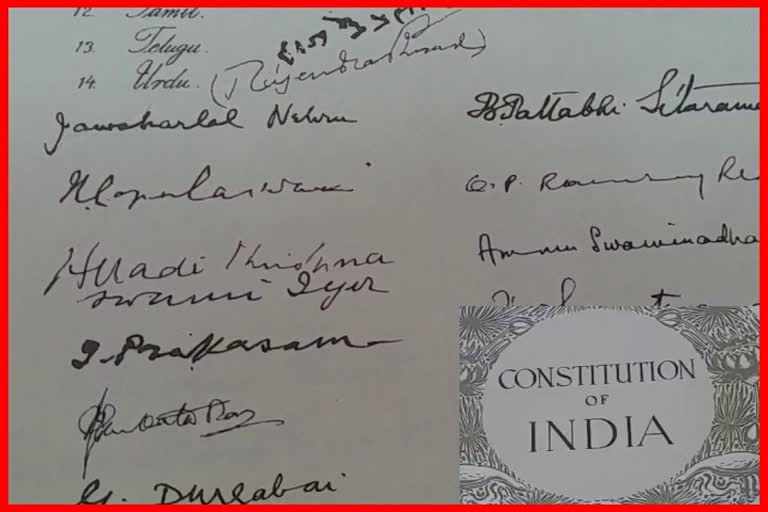 12. Tamil.
13. Telugu.
14. Urdu. (Rajendra Prasad)
Jawaharlal Nehru
B. Pattabhi Sitaram
N. Gopalaswami
O. P. Ramaswamy Re
Alladi Krishna
swami Iyer
Ammu Swaminadha
T. Prakasam
G. Durgabai
CONSTITUTION
OF
INDIA